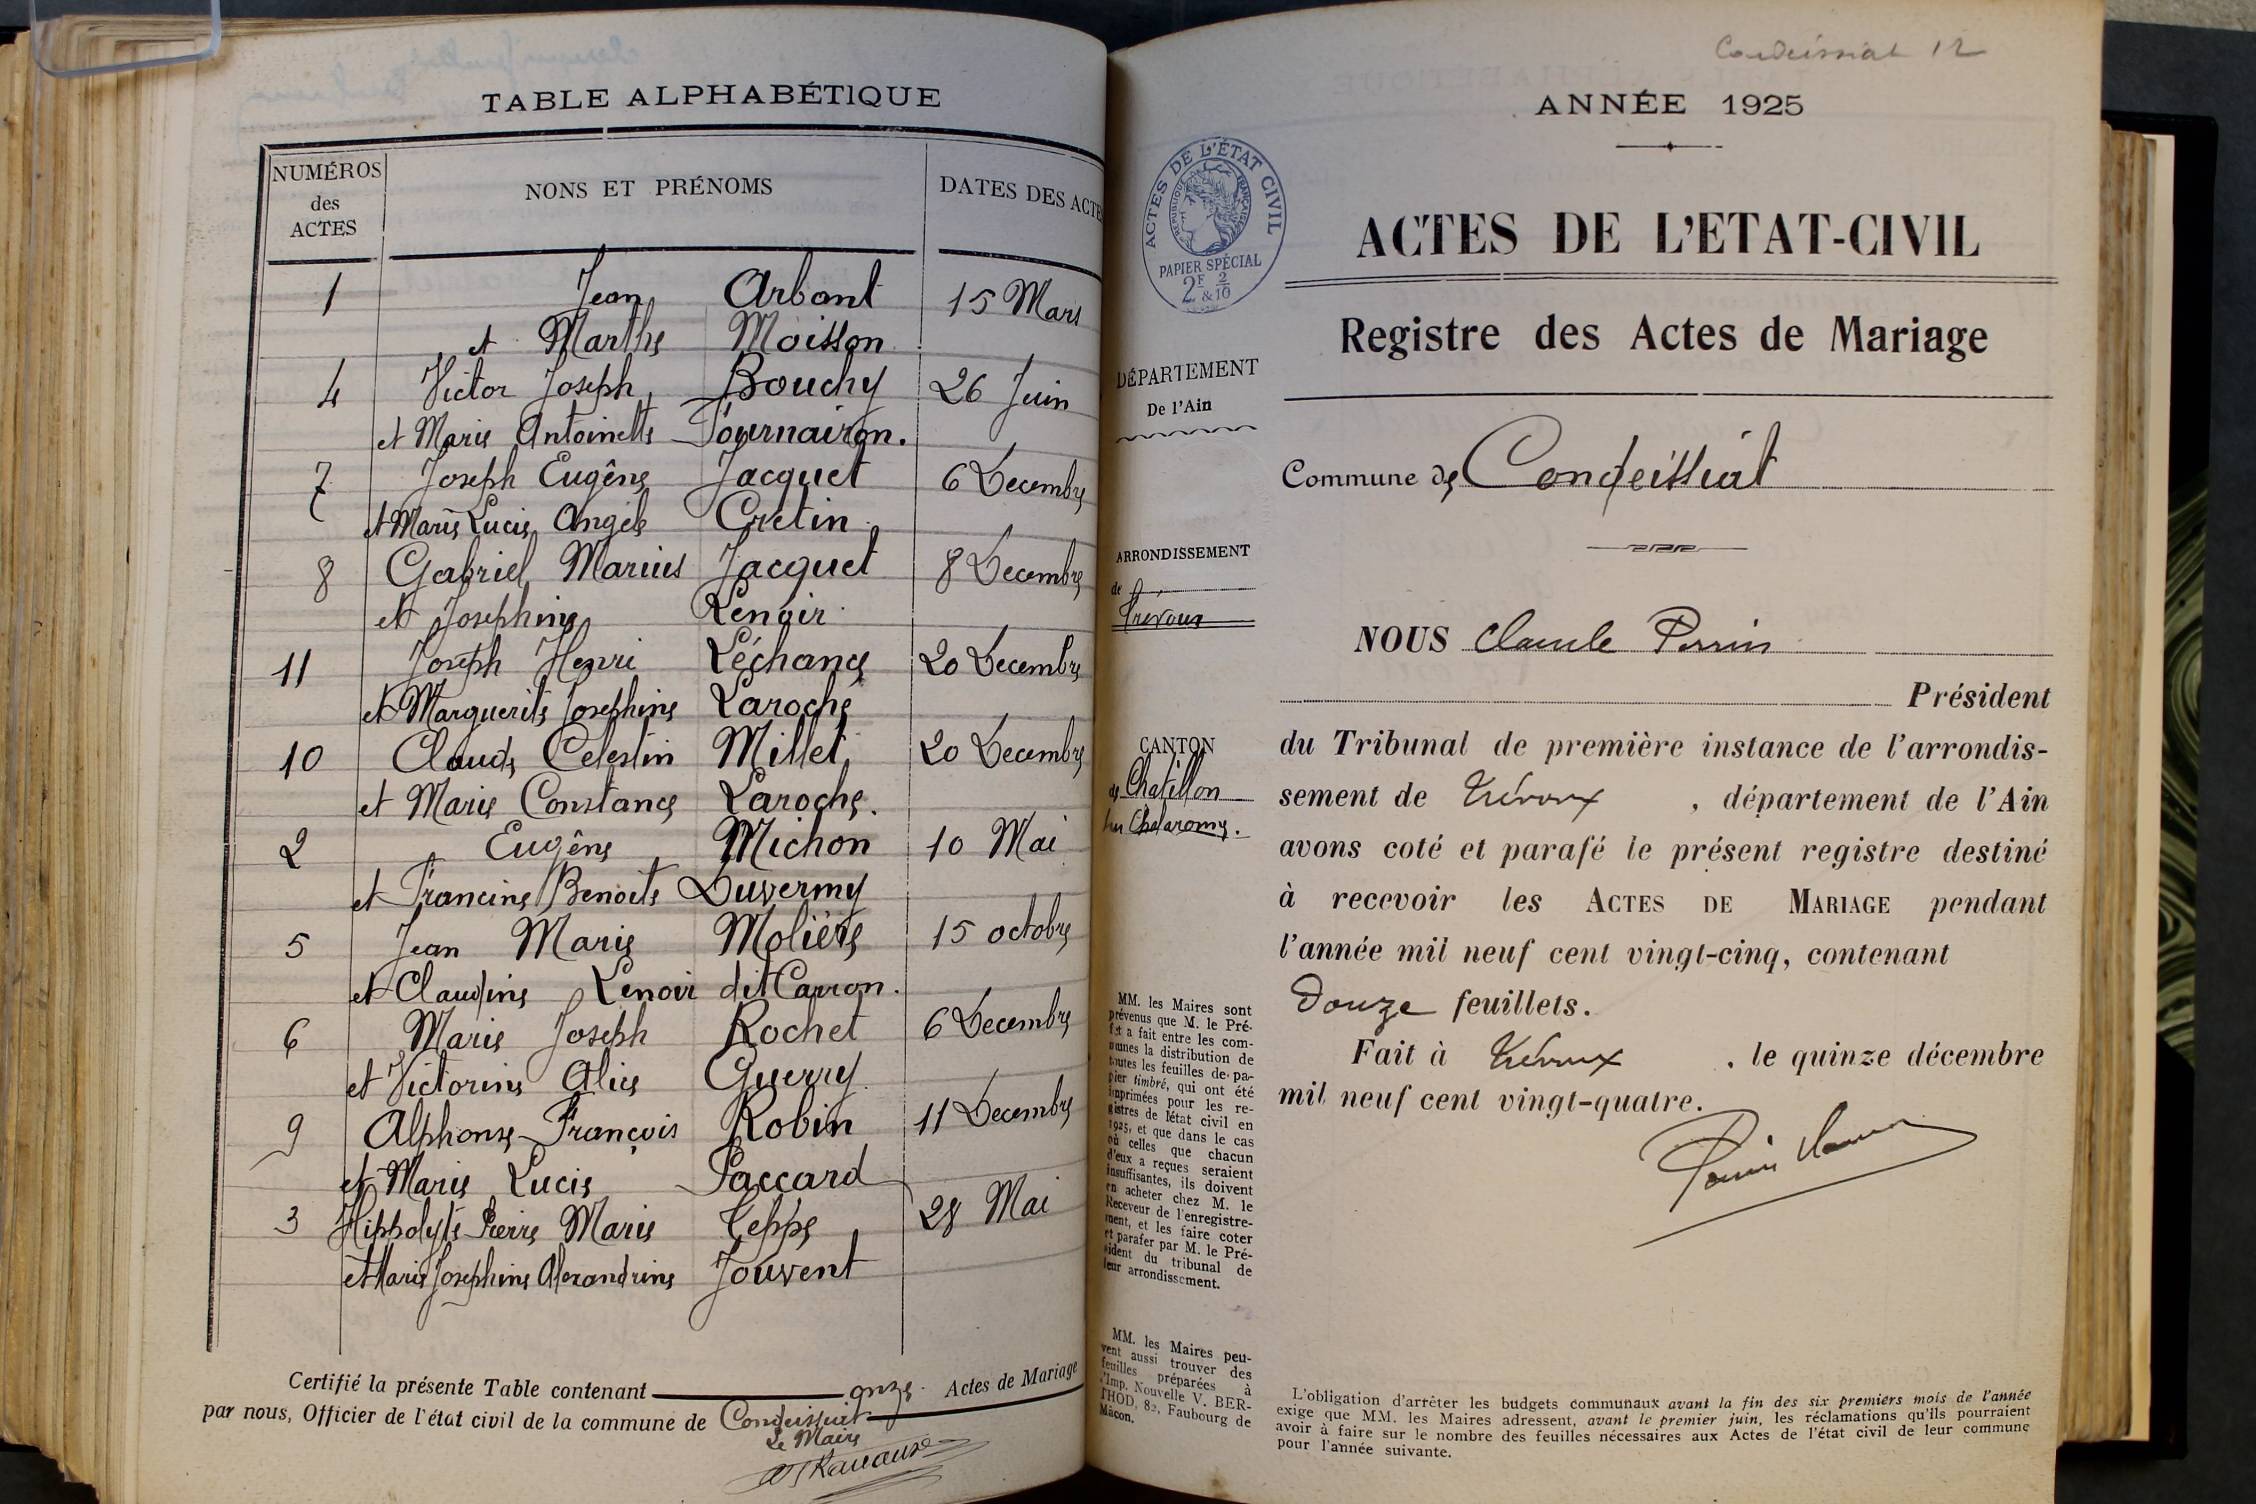 TABLE ALPHABÉTIQUE
NUMÉROS
des
ACTES
NONS ET PRÉNOMS
DATES DES ACTES
1 Jean Arbant 15 Mars
et Marthe Moisson
4 Victor Joseph Bouchy 26 Juin
et Marie Antoinette Tournairon.
7 Joseph Eugène Jacquet 6 Decembre
et Marie Lucie Angèle Cretin
8 Gabriel Marius Jacquet 8 Decembre
et Josephine Lenoir
11 Joseph Henri Léchance 20 Decembre
et Marguerite Josephine Laroche
10 Claude Celestin Millet 20 Decembre
et Marie Constance Laroche.
2 Eugène Michon 10 Mai
et Francine Benoite Duvermy
5 Jean Marie Molière 15 octobre
et Claudine Lenoir dit Carron.
6 Marie Joseph Rochet 6 Decembre
et Victorine Alice Guerry
9 Alphonse François Robin 11 Decembre
et Marie Lucie Paccard
3 Hippolyte Pierre Marie Teppe 28 Mai
et Marie Josephine Alexandrine Jouvent
Certifié la présente Table contenant onze Actes de Mariage
par nous, Officier de l'état civil de la commune de Condeissiat
Le Maire
Condeissiat 12
ANNÉE 1925
ACTES DE L'ÉTAT CIVIL
RÉPUBLIQUE FRANÇAISE
PAPIER SPÉCIAL
2F & 2/10
ACTES DE L'ETAT-CIVIL
Registre des Actes de Mariage
DÉPARTEMENT
De l'Ain
Commune de Condeissiat
ARRONDISSEMENT
de
Trévoux
NOUS Claude Perrin
Président
du Tribunal de première instance de l'arrondis-
sement de Trévoux , département de l'Ain
avons coté et parafé le présent registre destiné
à recevoir les ACTES DE MARIAGE pendant
l'année mil neuf cent vingt-cinq, contenant
Douze feuillets.
Fait à Trévoux , le quinze décembre
mil neuf cent vingt-quatre.
CANTON
de Chatillon
sur Chalaronne.
MM. les Maires sont
prévenus que M. le Pré-
fet a fait entre les com-
munes la distribution de
toutes les feuilles de pa-
pier timbré, qui ont été
imprimées pour les re-
gistres de l'état civil en
1925, et que dans le cas
où celles que chacun
d'eux a reçues seraient
insuffisantes, ils doivent
en acheter chez M. le
Receveur de l'enregistre-
ment, et les faire coter
et parafer par M. le Pré-
sident du tribunal de
leur arrondissement.
MM. les Maires peu-
vent aussi trouver des
feuilles préparées à
l'Imp. Nouvelle V. BER-
THOD, 82, Faubourg de
Mâcon.
L'obligation d'arrêter les budgets communaux avant la fin des six premiers mois de l'année
exige que MM. les Maires adressent, avant le premier juin, les réclamations qu'ils pourraient
avoir à faire sur le nombre des feuilles nécessaires aux Actes de l'état civil de leur commune
pour l'année suivante.